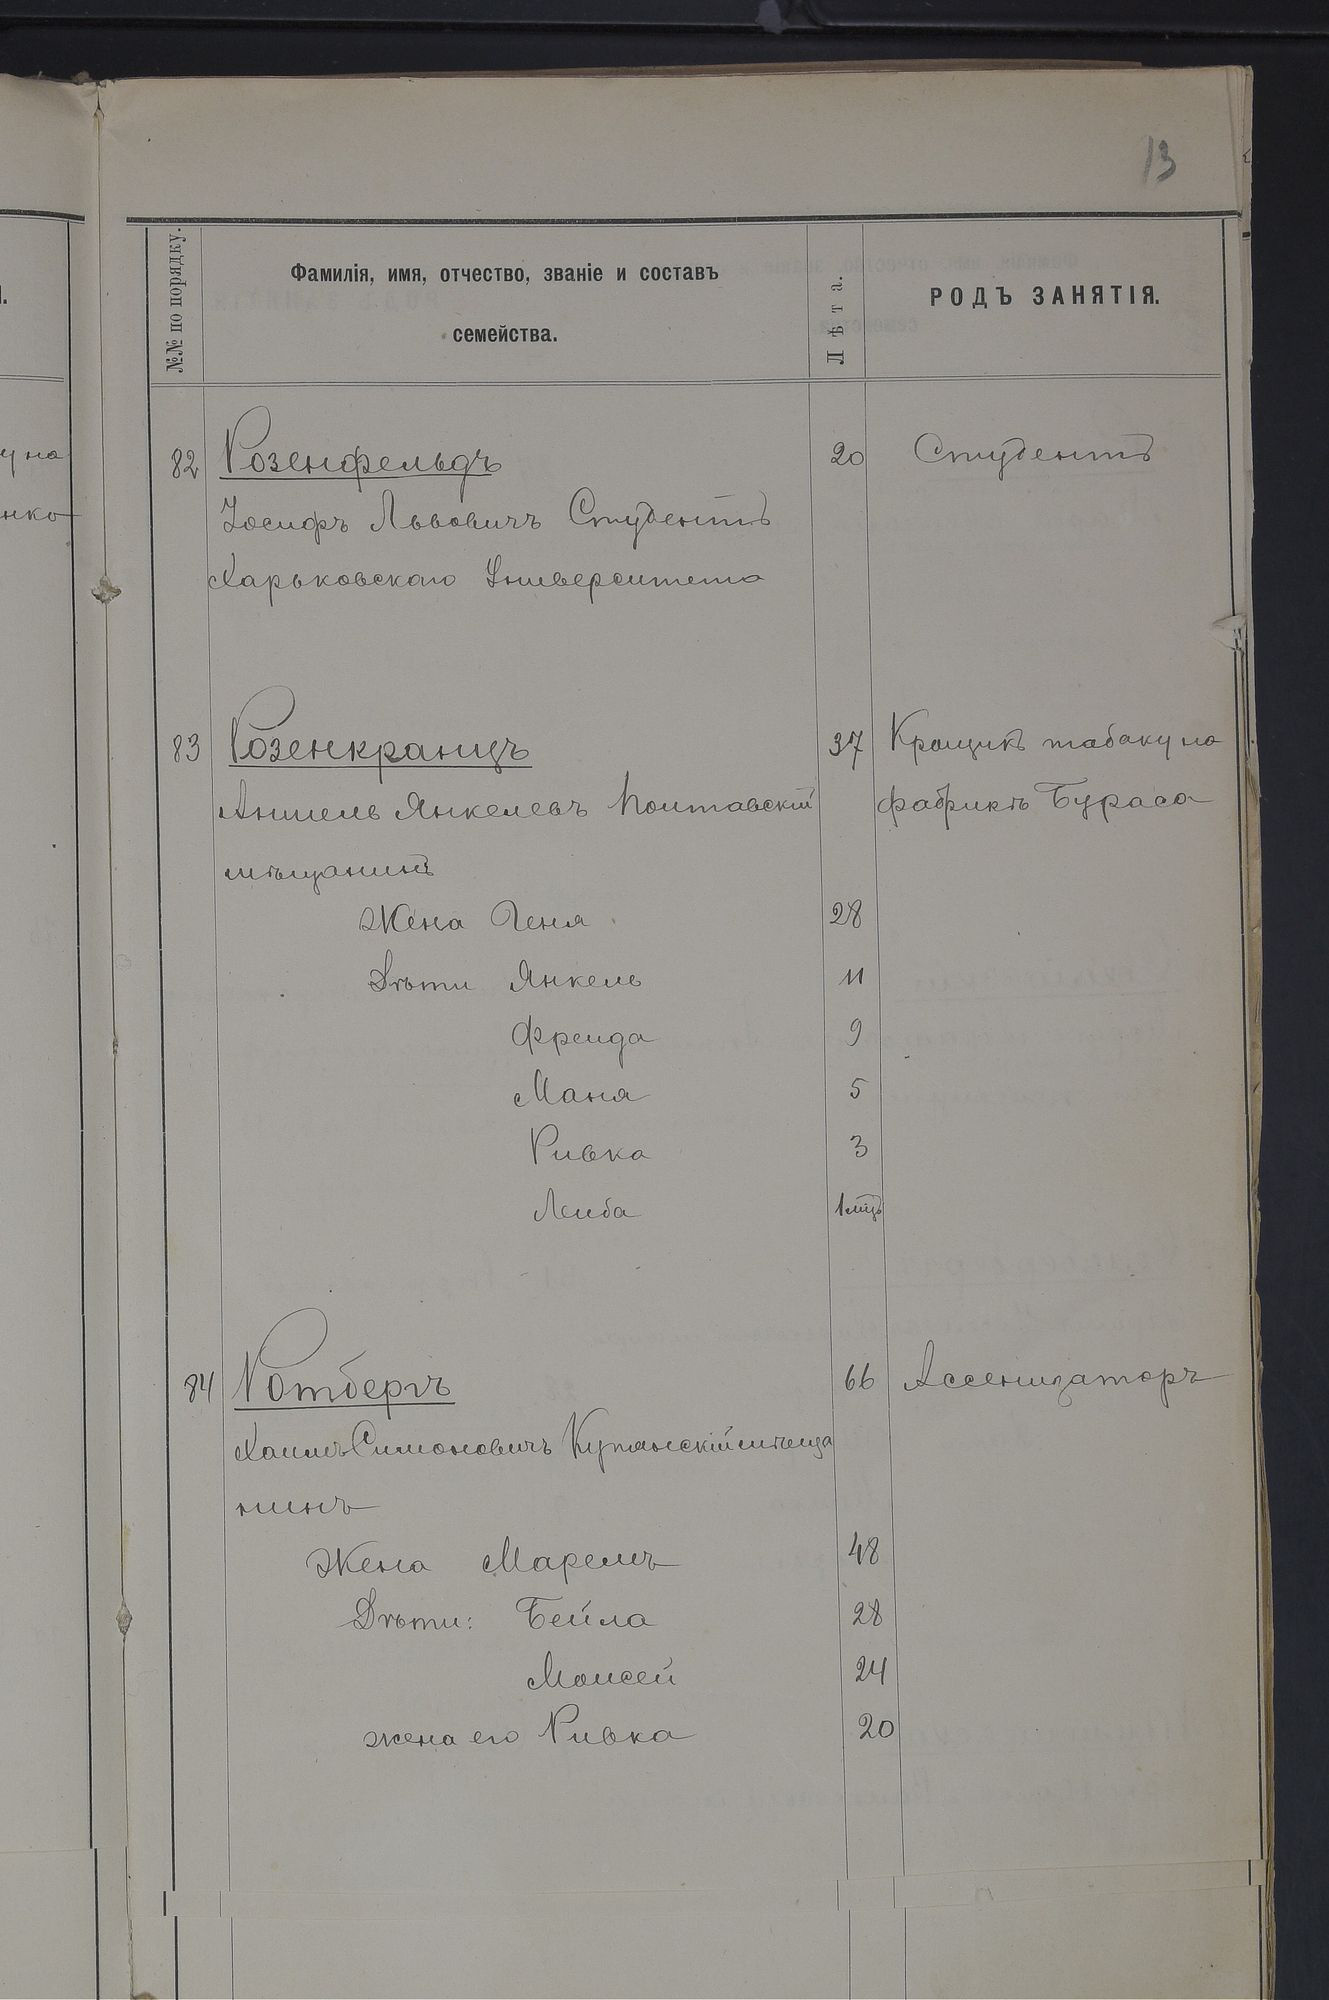 13
№№ по порядку.
Фамилія, имя, отчество, званіе и составъ
семейства.
Лѣта.
РОДЪ ЗАНЯТІЯ.
82 Розенфельдъ 20 Студентъ
Іосифъ Львовичъ Студентъ
Харьковскаго Университета
83 Розенкранцъ 37 Крощикъ табаку на
Аншель Янкелевъ Полтавскій фабрикѣ Бураса
мѣщанинъ
Жена Геня 28
Дѣти Янкель 11
Фреида 9
Маня 5
Ривка 3
Леиба 1 мцъ
84 Ротбергъ 66 Ассенизаторъ
Хаимъ Симоновичъ Купянскій мѣща
нинъ
Жена Маремъ 48
Дѣти: Бейла 28
Моисей 24
жена его Ривка 20
у на
нко